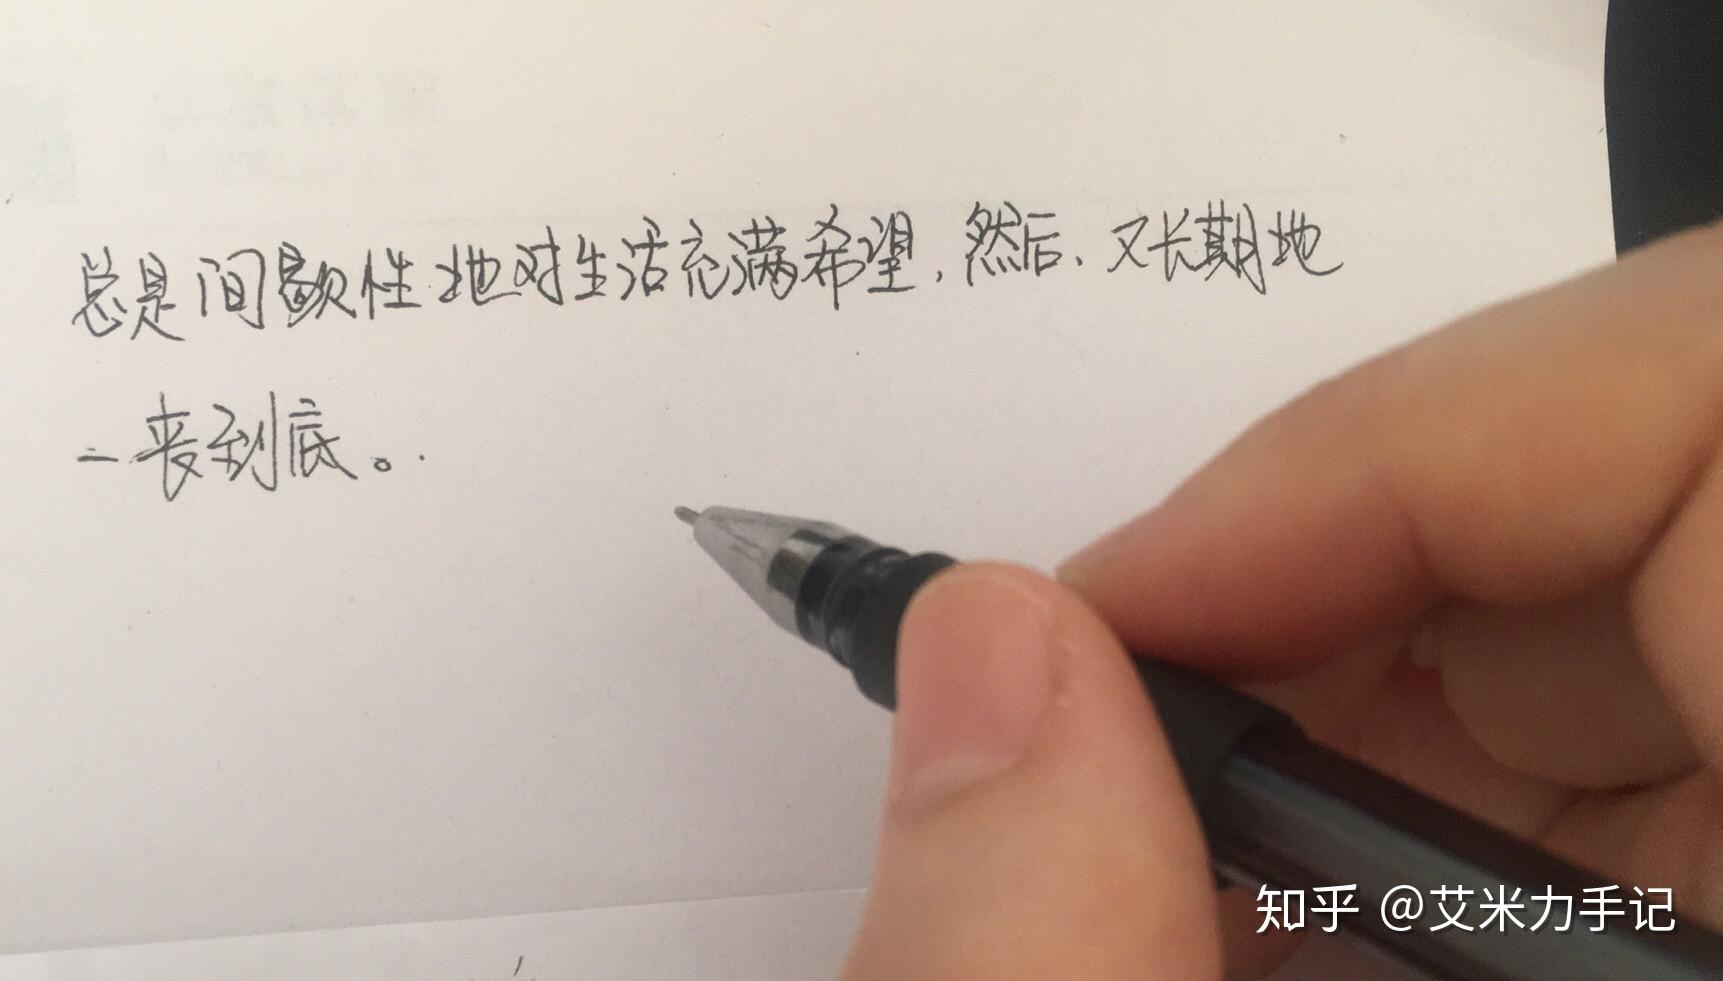 总是间歇性地对生活充满希望，然后、又长期地
一丧到底。
知乎 @艾米力手记